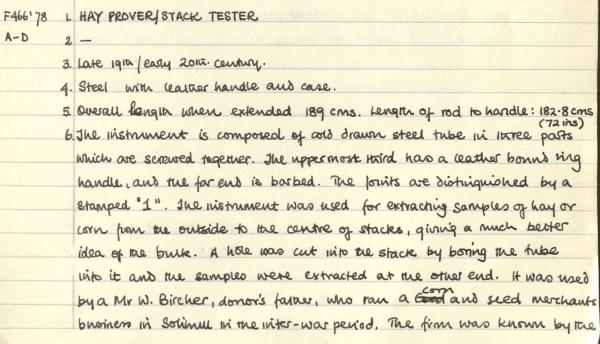 F466'78 1. HAY PROVER/STACK TESTER
A-D 2 —
3. Late 19th/early 20th. century.
4. Steel with leather handle and case.
5 Overall length when extended 189 cms. Length of rod to handle: 182.8 cms
(72 ins)
6. The instrument is composed of cold drawn steel tube in three parts
which are screwed together. The uppermost third has a leather bound ring
handle, and the far end is barbed. The joints are distinguished by a
stamped "1". The instrument was used for extracting samples of hay or
corn from the outside to the centre of stacks, giving a much better
idea of the bulk. A hole was cut into the stack by boring the tube
into it and the samples were extracted at the other end. It was used
by a Mr W. Bircher, donor's father, who ran a corn and seed merchants
business in Solihull in the inter-war period. The firm was known by the